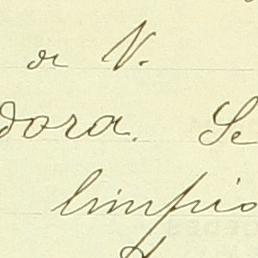 or V.
dora. Se
limpio